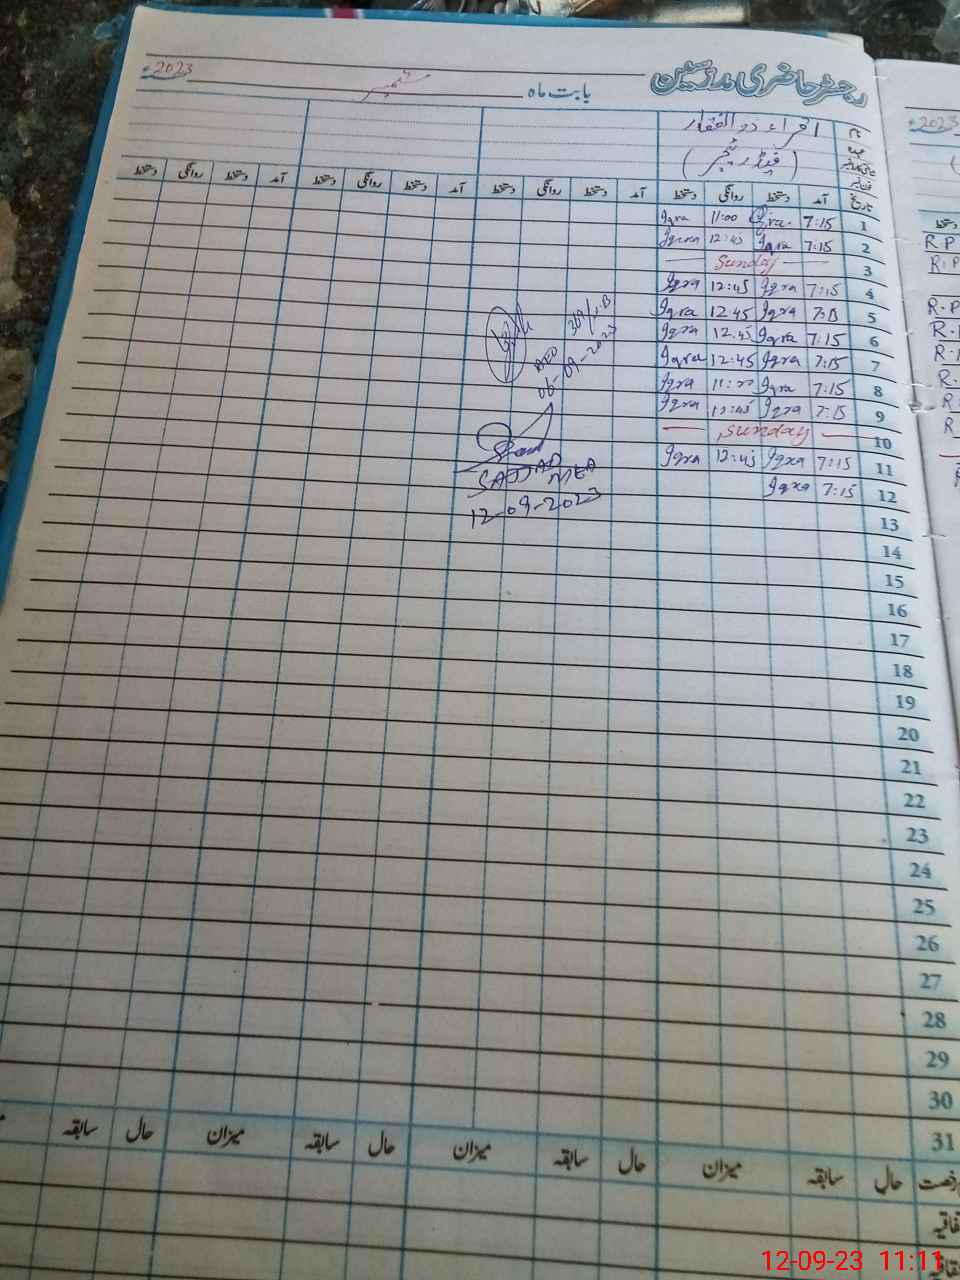 رجسٹر حاضری مدرسین بابت ماہ ستمبر 2023ء
2023ء
نام اقراء ذوالفقار
عہدہ (فیڈر ٹیچر)
تاریخ آمد دستخط روانگی دستخط آمد دستخط روانگی دستخط آمد دستخط روانگی دستخط آمد دستخط روانگی دستخط
دستخط
1 7:15 Iqra 11:00 Iqra
2 7:15 Iqra 12:45 Iqra
R.P
3 Sunday
R.P
4 7:15 Iqra 12:45 Iqra
5 7:15 Iqra 12:45 Iqra
R.P
6 7:15 Iqra 12:45 Iqra
R.
7 7:15 Iqra 12:45 Iqra
R.
8 7:15 Iqra 11:00 Iqra
R.
9 7:15 Iqra 12:45 Iqra
R.
10 Sunday
R
11 7:15 Iqra 12:45 Iqra
12 7:15 Iqra
AEO
06-09-2023
SAJJAD
MEA
12-09-2023
13
14
15
16
17
18
19
20
21
22
23
24
25
26
27
28
29
30
31
رخصت حال سابقہ میزان حال سابقہ میزان حال سابقہ میزان حال سابقہ
12-09-23 11:11